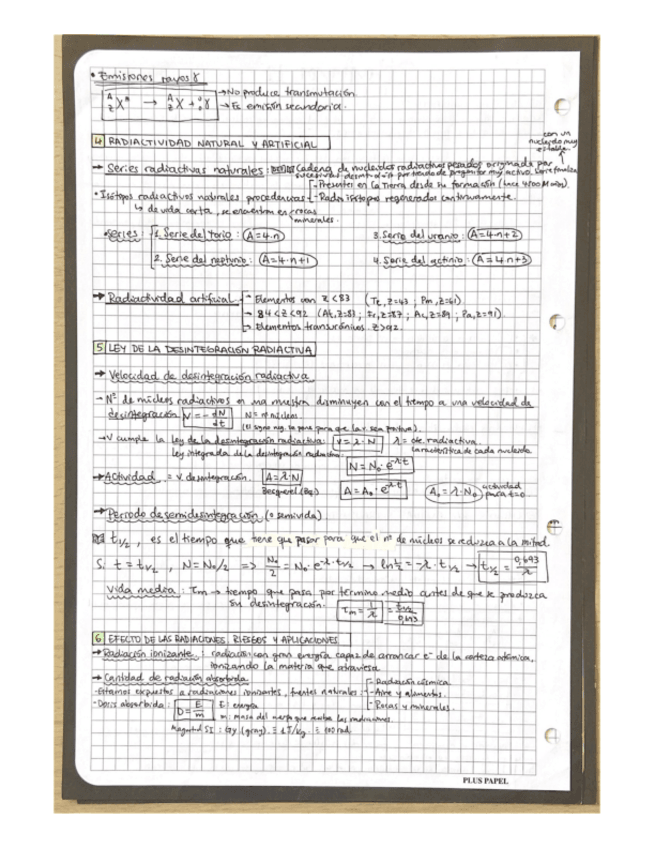 • Emisiones rayos γ
A Z X* → A Z X + 0 0 γ → No produce transmutación
→ Es emisión secundaria.
4 RADIACTIVIDAD NATURAL Y ARTIFICIAL
con un nucleido muy estable.
→ Series radiactivas naturales: Cadena de nucleidos radiactivos pesados originada por
sucesivas desintegra por teado de progenitor muy activo. Serie finaliza
- Presentes en la Tierra desde su formación (hace 4500 M años).
• Isótopos radiactivos naturales procedencias - Radioisótopos regenerados continuamente.
↳ de vida corta, se encuentran en rocas
minerales.
• Series: 1. Serie del torio: A=4·n 3. Serie del uranio: A=4·n+2
2. Serie del neptunio: A=4·n+1 4. Serie del actinio: A=4·n+3
→ Radiactividad artificial - Elementos con Z<83 (Tc, Z=43; Pm, Z=61).
→ 84<Z<92 (At, Z=85; Fr, Z=87; Ac, Z=89; Pa, Z=91).
→ Elementos transuránicos. Z>92.
5 LEY DE LA DESINTEGRACIÓN RADIACTIVA
→ Velocidad de desintegración radiactiva
- Nº de núcleos radiactivos en una muestra disminuyen con el tiempo a una velocidad de
desintegración V = - dN/dt N = nº núcleos
(el signo neg. se pone para que la v sea positiva).
→ V cumple la ley de la desintegración radiactiva: V = λ·N λ = cte. radiactiva.
característica de cada nucleido
ley integrada de la desintegración radiactiva: N = N₀·e^-λt
→ Actividad = v. desintegración. A = λ·N
Becquerel (Bq) A = A₀·e^-λt A₀ = λ·N₀ actividad para t=0
→ Periodo de semidesintegración (o semivida)
t1/2, es el tiempo que tiene que pasar para que el nº de núcleos se reduzca a la mitad.
Si t = t1/2, N = N₀/2 => N₀/2 = N₀·e^-λ·t1/2 → ln 1/2 = -λ·t1/2 → t1/2 = 0,693/λ
Vida media: τm → tiempo que pasa por término medio antes de que se produzca
su desintegración. τm = 1/λ = t1/2/0,693
6 EFECTO DE LAS RADIACIONES. RIESGOS Y APLICACIONES
→ Radiación ionizante: radiación con gran energía capaz de arrancar e⁻ de la corteza atómica,
ionizando la materia que atraviesa
→ Cantidad de radiación absorbida - Radiación cósmica.
- Estamos expuestos a radiaciones ionizantes, fuentes naturales: - Aire y alimentos.
- Dosis absorbida: D = E/m E: energía - Rocas y minerales.
m: masa del cuerpo que recibe las radiaciones.
Magnitud SI: Gy (gray). ≡ 1 J/kg. ≡ 100 rad.
PLUS PAPEL